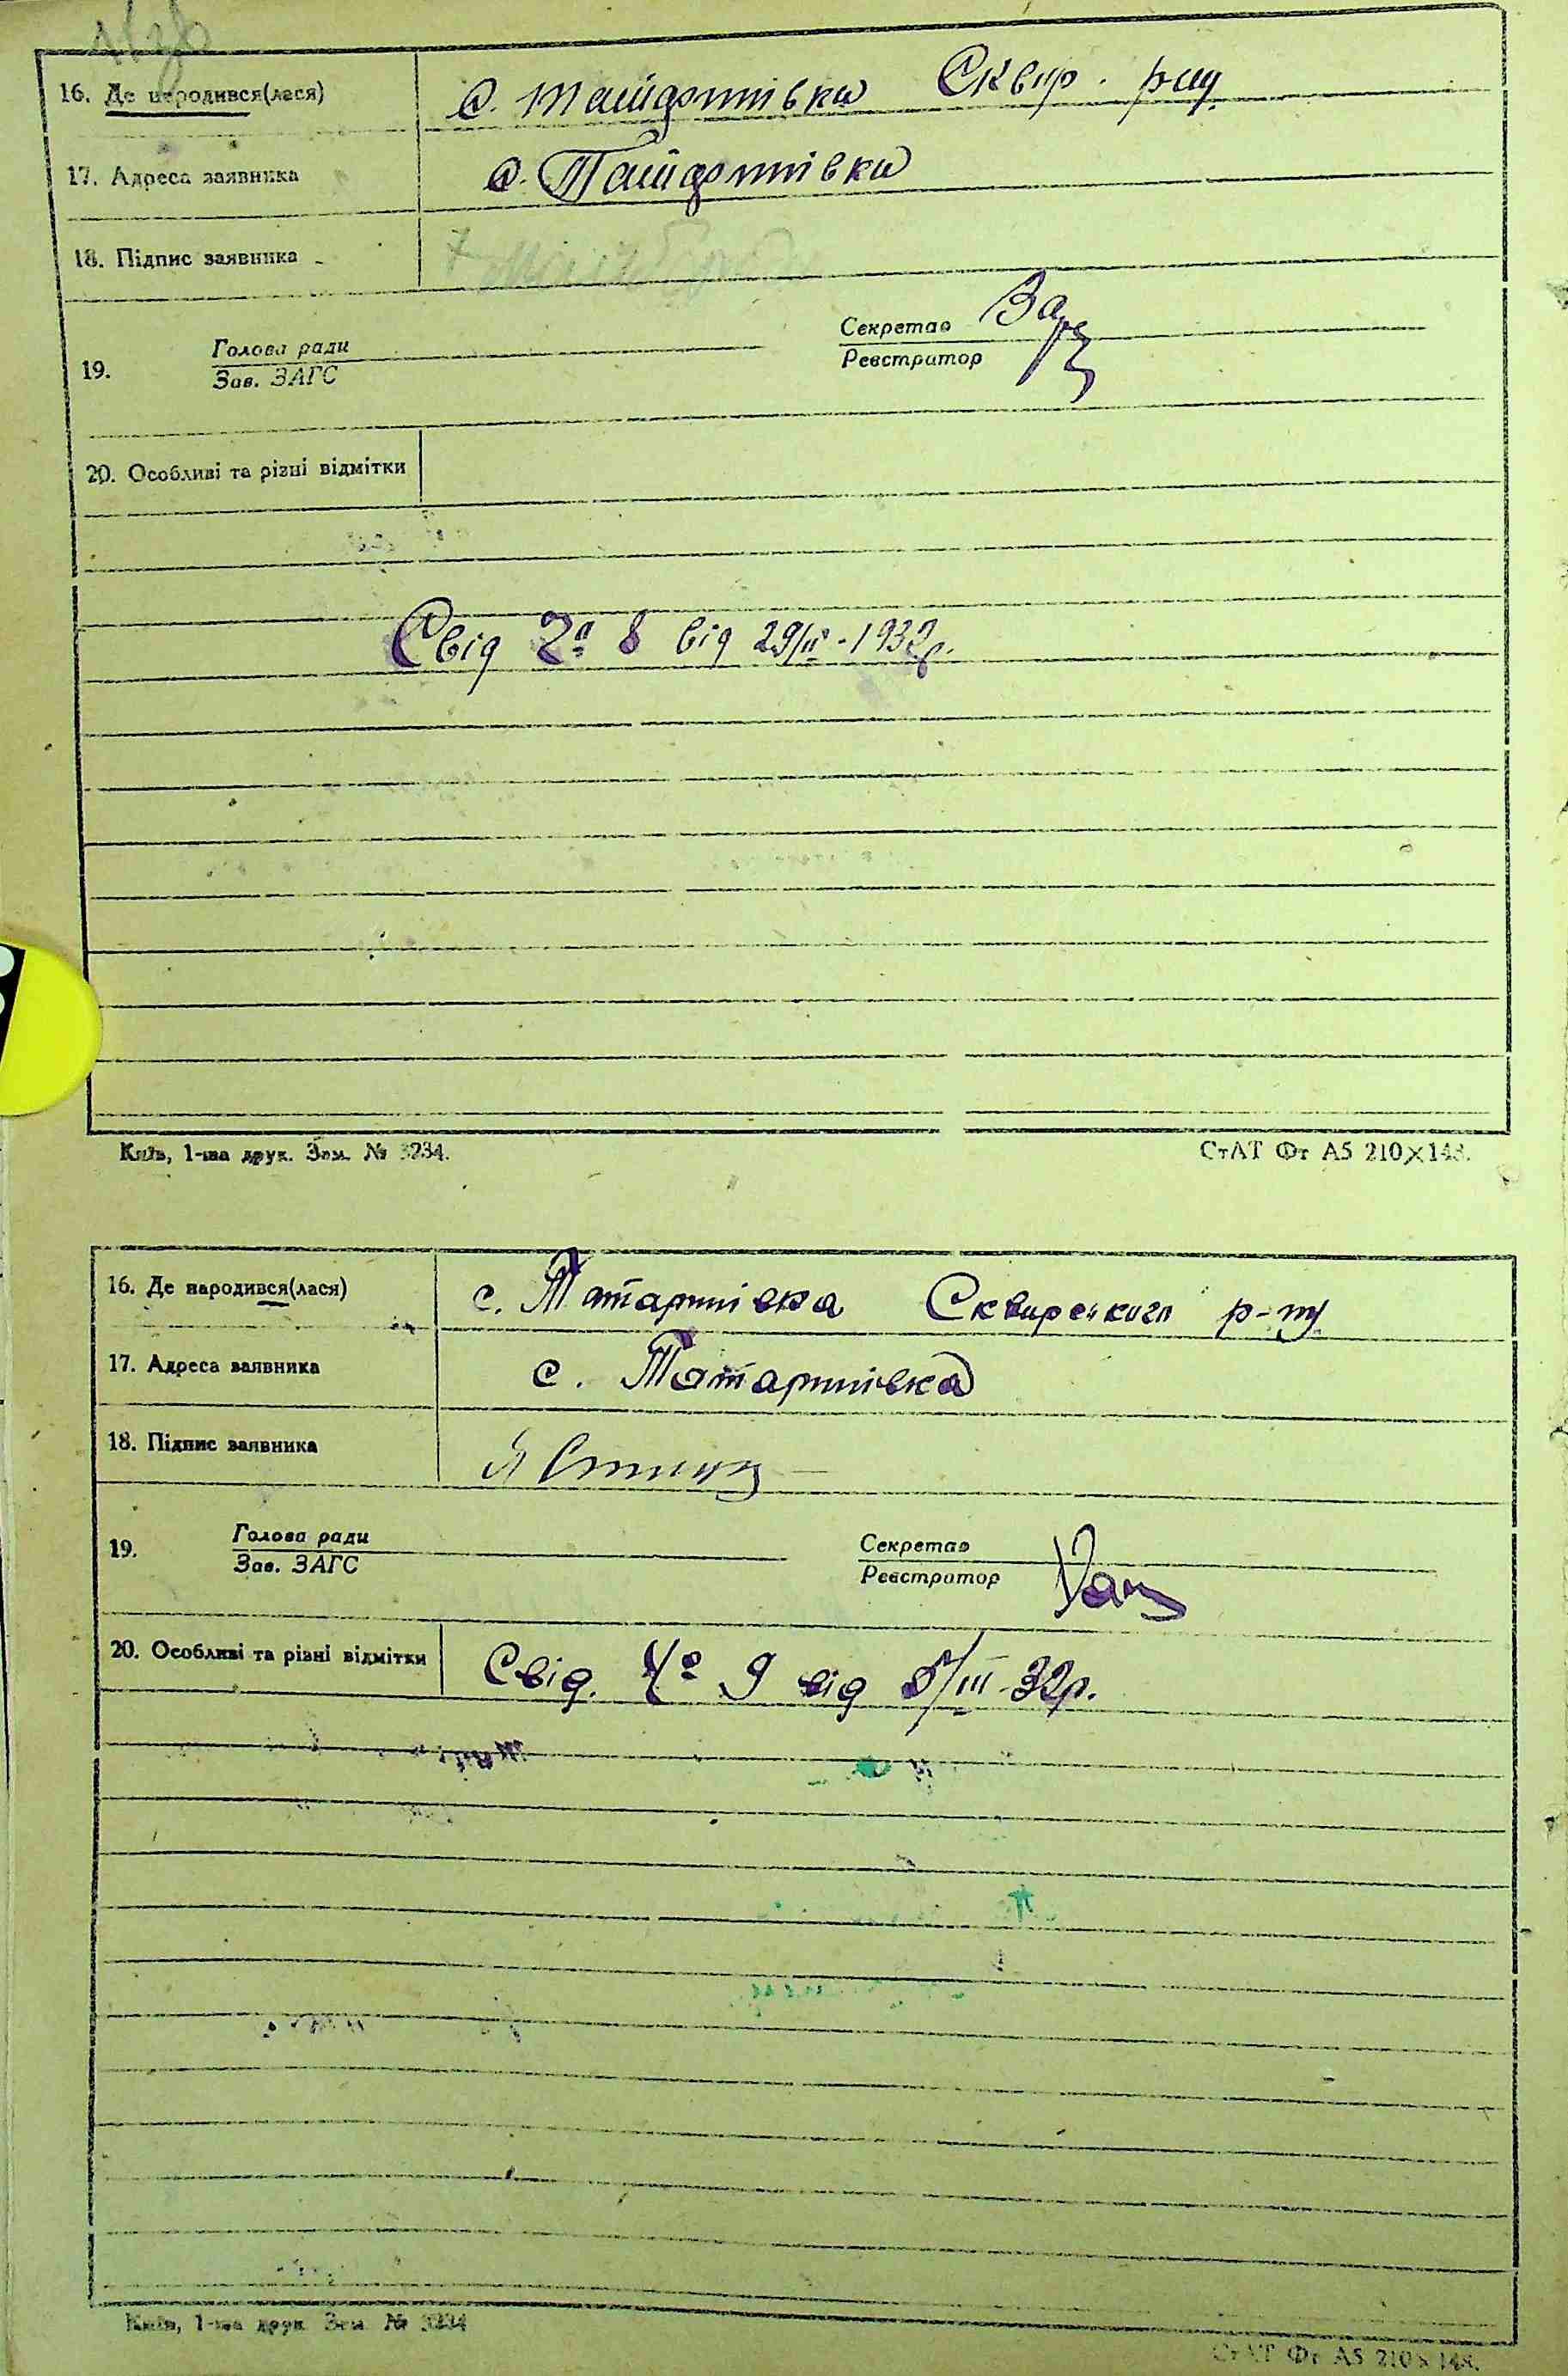 16. Де народився(лася)
с. Тайдотпівка Сквир. р-ну
17. Адреса заявника
с. Тайдотпівка
18. Підпис заявника
19. Голова ради
Зав. ЗАГС
Секретар
Реєстратор
20. Особливі та різні відмітки
Свід № 8 від 29/II-1932р.
Київ, 1-ша друк. Зам. № 3234.
СтАТ Фт А5 210×148.
16. Де народився(лася)
с. Татарпівка Сквирського р-ну
17. Адреса заявника
с. Татарпівка
18. Підпис заявника
19. Голова ради
Зав. ЗАГС
Секретар
Реєстратор
20. Особливі та різні відмітки
Свід. № 9 від 5/III-32р.
Київ, 1-ша друк. Зам. № 3234
СтАТ Фт А5 210×148.